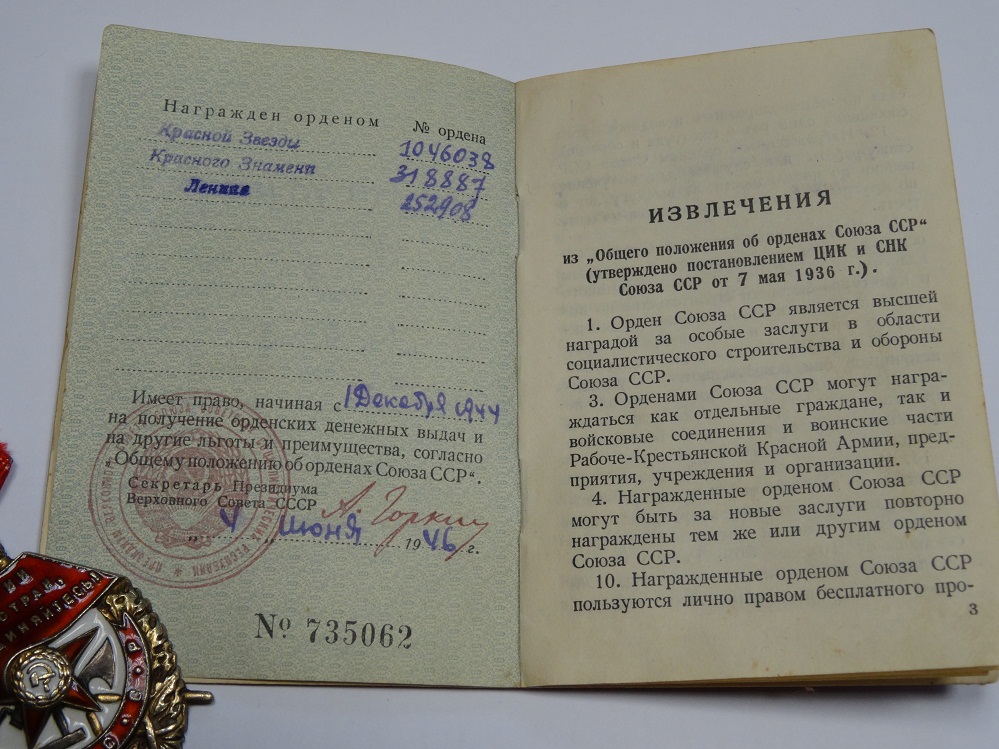 Награжден орденом № ордена
Красной Звезды 1046038
Красного Знамени 318887
Ленина 252908
Имеет право, начиная с 1 Декабря 1944
на получение орденских денежных выдач и
на другие льготы и преимущества, согласно
„Общему положению об орденах Союза ССР“.
Секретарь Президиума
Верховного Совета СССР А. Горкин
„4“ июня 1946 г.
№ 735062
ИЗВЛЕЧЕНИЯ
из „Общего положения об орденах Союза ССР“
(утверждено постановлением ЦИК и СНК
Союза ССР от 7 мая 1936 г.).
1. Орден Союза ССР является высшей
наградой за особые заслуги в области
социалистического строительства и обороны
Союза ССР.
3. Орденами Союза ССР могут награ-
ждаться как отдельные граждане, так и
войсковые соединения и воинские части
Рабоче-Крестьянской Красной Армии, пред-
приятия, учреждения и организации.
4. Награжденные орденом Союза ССР
могут быть за новые заслуги повторно
награждены тем же или другим орденом
Союза ССР.
10. Награжденные орденом Союза ССР
пользуются лично правом бесплатного про-
3